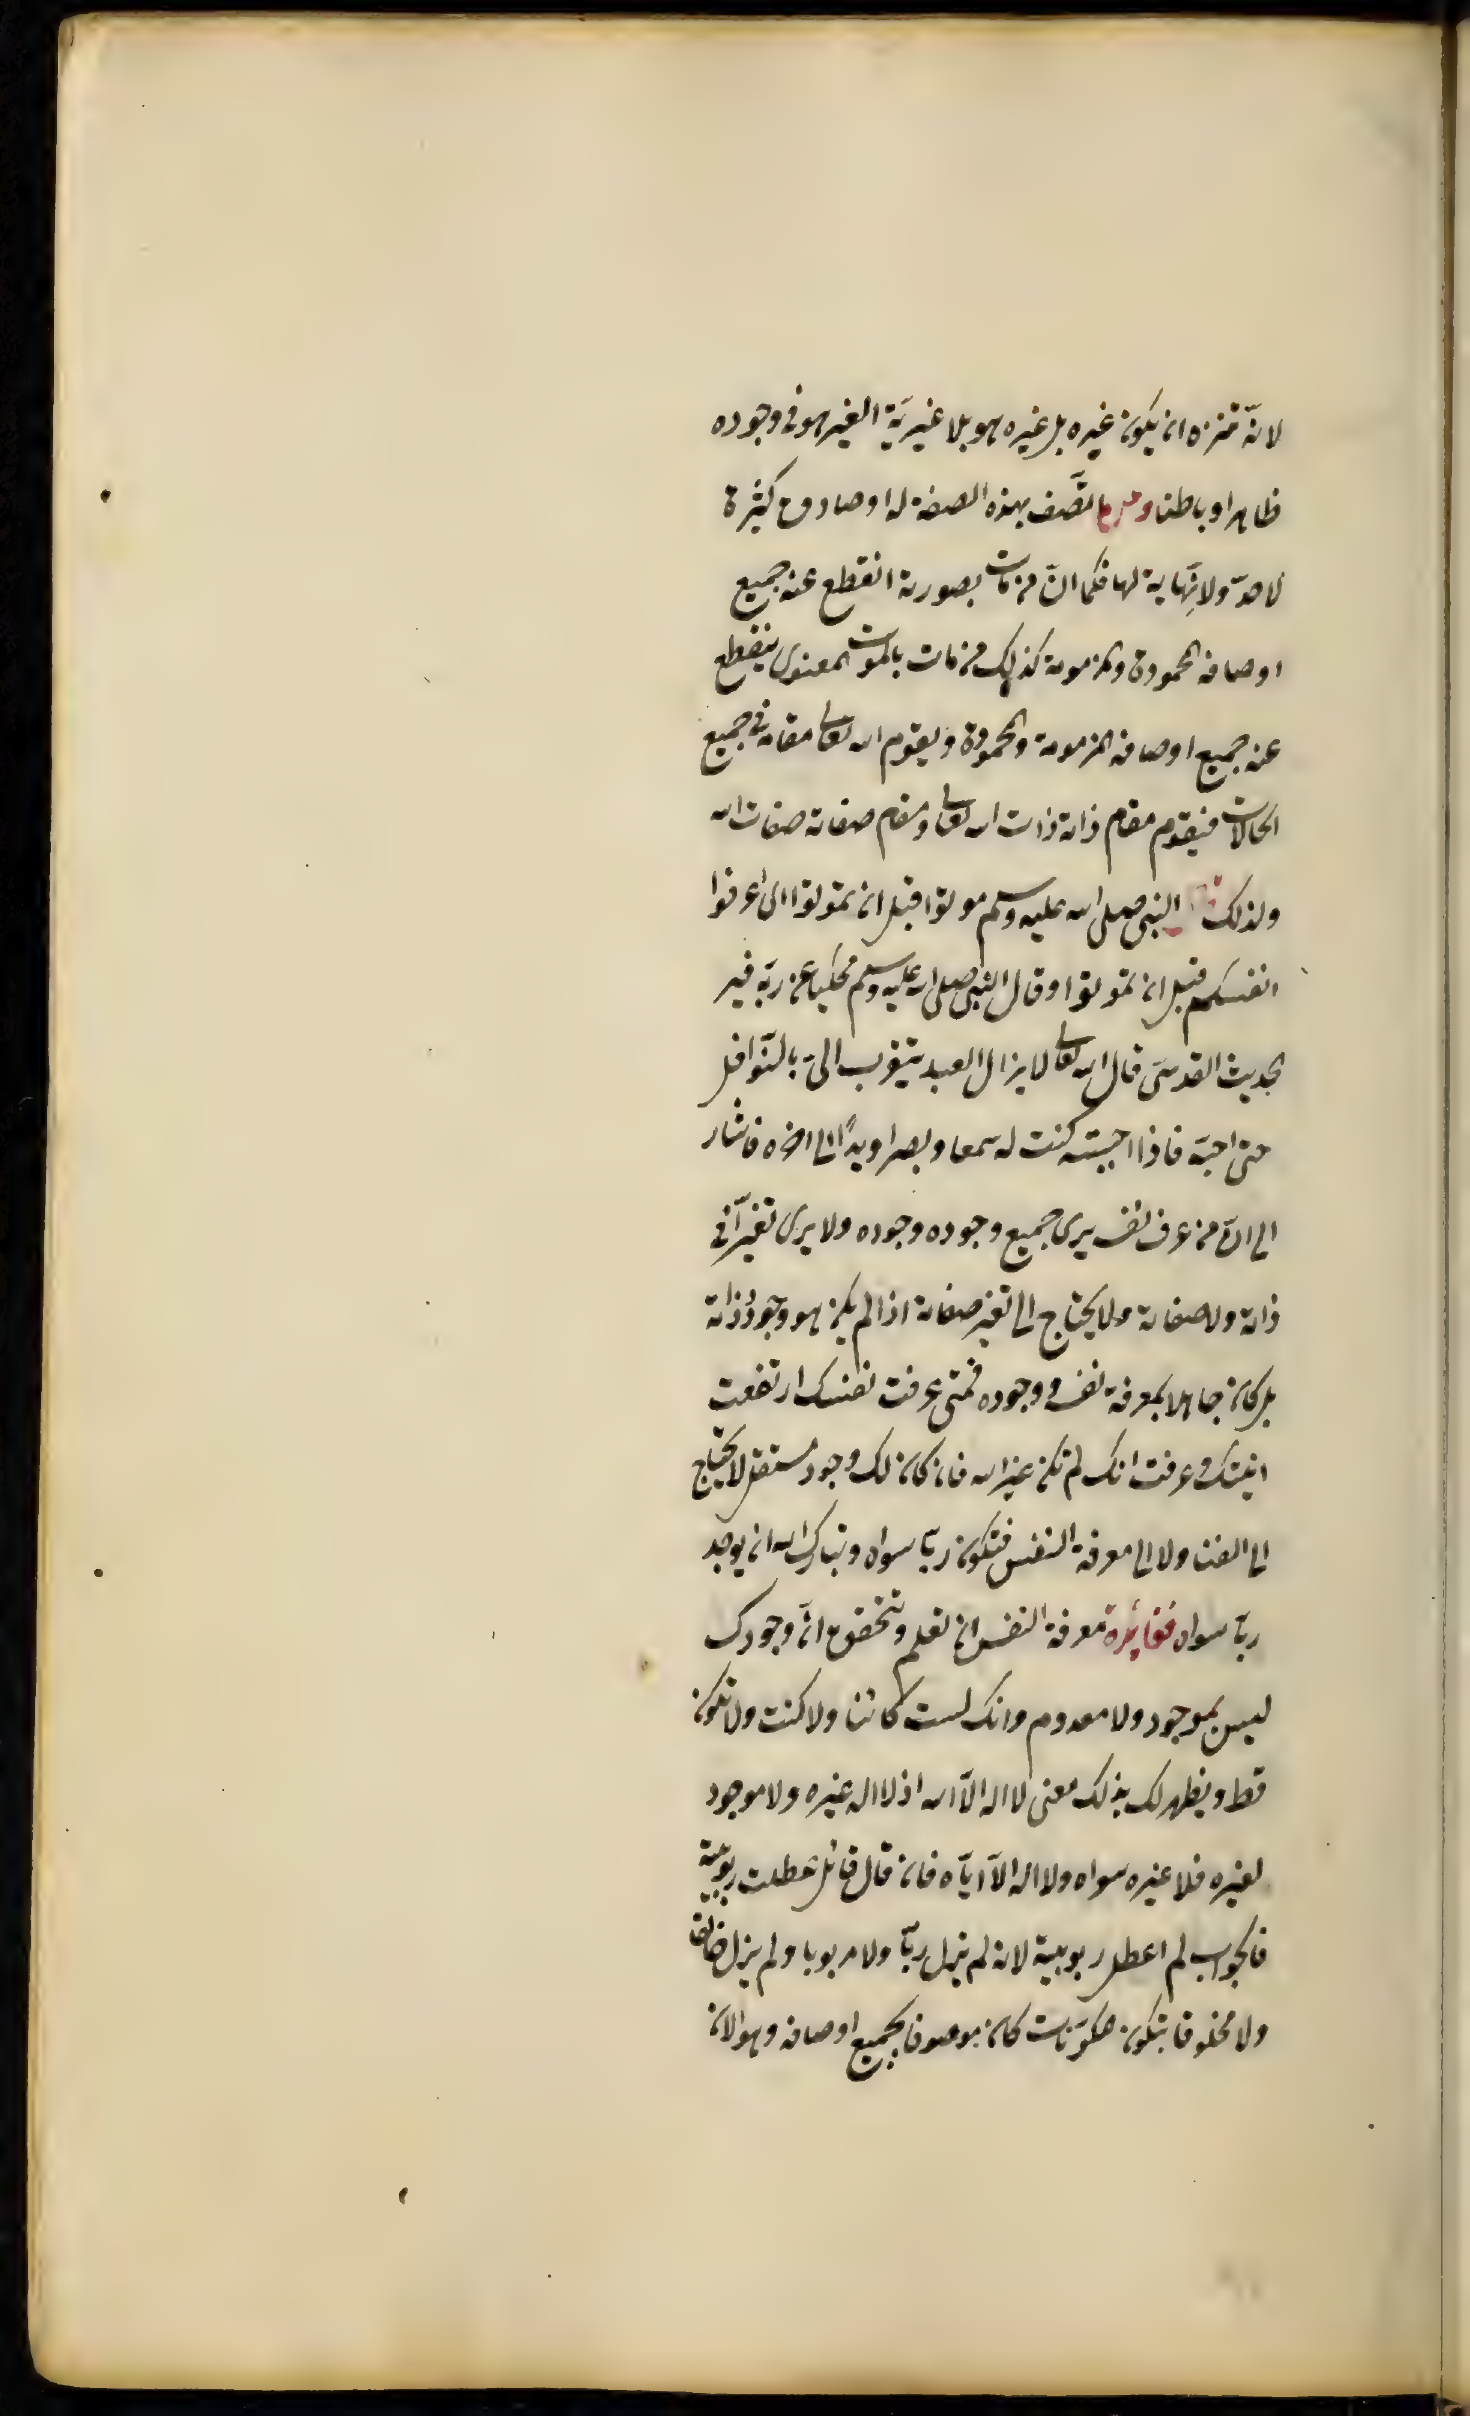 لانّه منزه ان يكون غيره بل غيره هو بلا غيريّة الغير هو فى وجوده
ظاهرا وباطنا ومن اتّصف بهذه الصفة له اوصاف كثيرة
لا حدّ ولا نهاية لها فكما انّ من مات بصورته انقطع عنه جميع
اوصافه المحمودة والمذمومة كذلك من مات بالموت المعنوى ينقطع
عنه جميع اوصافه المذمومة والمحمودة ويقوم الله تعالى مقامه فى جميع
الحالات فيقوم مقام ذاته ذات الله تعالى ومقام صفاته صفات الله
ولذلك قال النبى صلى الله عليه وسلم موتوا قبل ان تموتوا اى اعرفوا
انفسكم قبل ان تموتوا وقال النبى صلى الله عليه وسلم محكيا عن ربّه فى
الحديث القدسىّ قال الله تعالى لا يزال العبد يتقرب الىّ بالنّوافل
حتى احبّه فاذا احببته كنت له سمعا وبصرا ويدًا الى اخره فاشار
الى انّ من عرف نفسه يرى جميع وجوده وجوده ولا يرى تغيّرا فى
ذاته ولا صفاته ولا يحتاج الى تغير صفاته اذا لم يكن هو وجودُ ذاته
بل كان جاهلا بمعرفة نفسه ووجوده فمتى عرفت نفسك ارتفعت
انيتك وعرفت انك لم تكن غير الله فان كان لك وجود مستقل لا يحتاج
الى الفنا ولا الى معرفة النفس فتكون ربّا سواه وتبارك الله ان يوجد
ربّا سواه ففائدة معرفة النفس ان تعلم وتتحقق انّ وجودك
ليس بموجود ولا معدوم وانك لست كائنا ولا كنت ولا تكون
قط ويظهر لك بذلك معنى لا اله الّا الله اذ لا اله غيره ولا موجود
لغيره فلا غيره سواه ولا اله الّا ايّاه فان قال قائل عطلت ربوبيّة
فالجواب لم اعطل ربوبية لانه لم يزل ربّا ولا مربوبا ولم يزل خالقا
ولا مخلوقا بتكون مكوّنات كان موصوفا بجميع اوصافه وهو الان